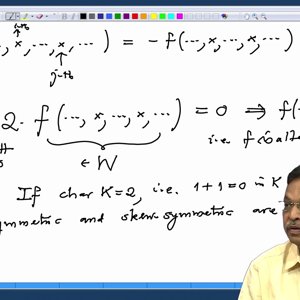 i-th
, x, ..., x, ...) = - f(..., x, ..., x, ...)
j-th
2. f(..., x, ..., x, ...) = 0 ⇒ f(
i.e. f is alte
∈ W
If char K=2, i.e. 1+1=0 in K
ymmetric and skew-symmetric are